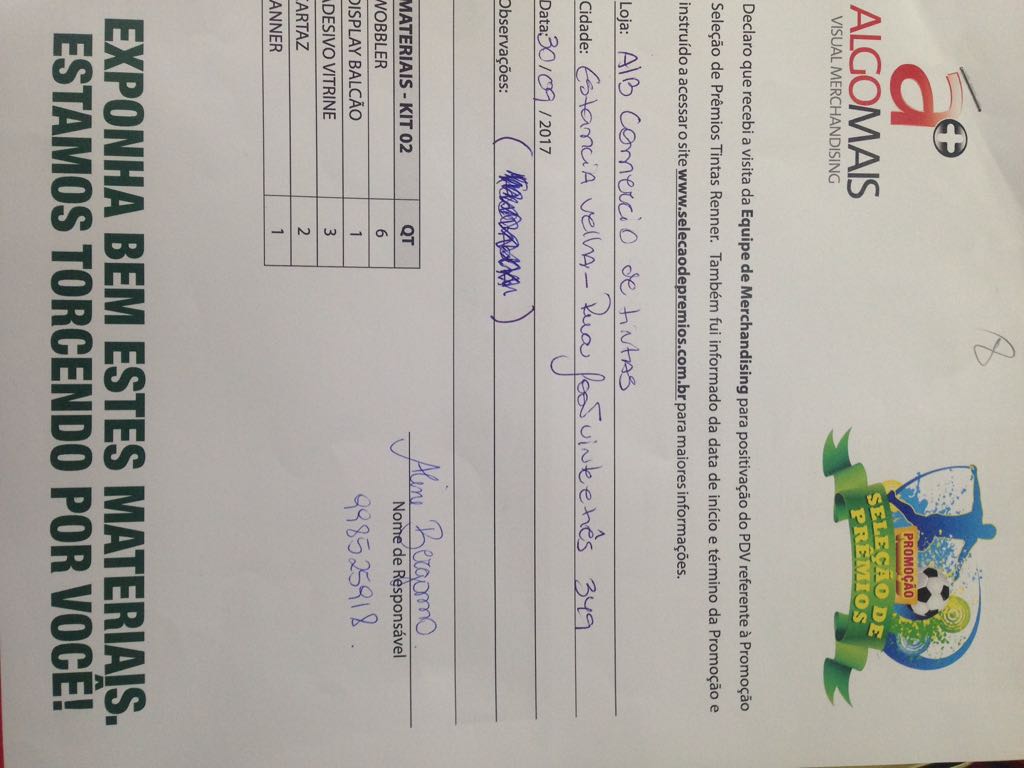 ALGOMAIS
VISUAL MERCHANDISING
a+
8
PROMOÇÃO
SELEÇÃO DE
PRÊMIOS
Declaro que recebi a visita da Equipe de Merchandising para positivação do PDV referente à Promoção
Seleção de Prêmios Tintas Renner. Também fui informado da data de início e término da Promoção e
instruído a acessar o site www.selecaodepremios.com.br para maiores informações.
Loja: AIB Comercio de tintas
Cidade: Estancia velha - Rua João vinte e três 349
Data: 30/09/2017
Observações: ( )
MATERIAIS - KIT 02 QT
WOBBLER 6
DISPLAY BALCÃO 1
ADESIVO VITRINE 3
ARTAZ 2
ANNER 1
Aline Bergamo
Nome de Responsável
998525918.
EXPONHA BEM ESTES MATERIAIS.
ESTAMOS TORCENDO POR VOCÊ!